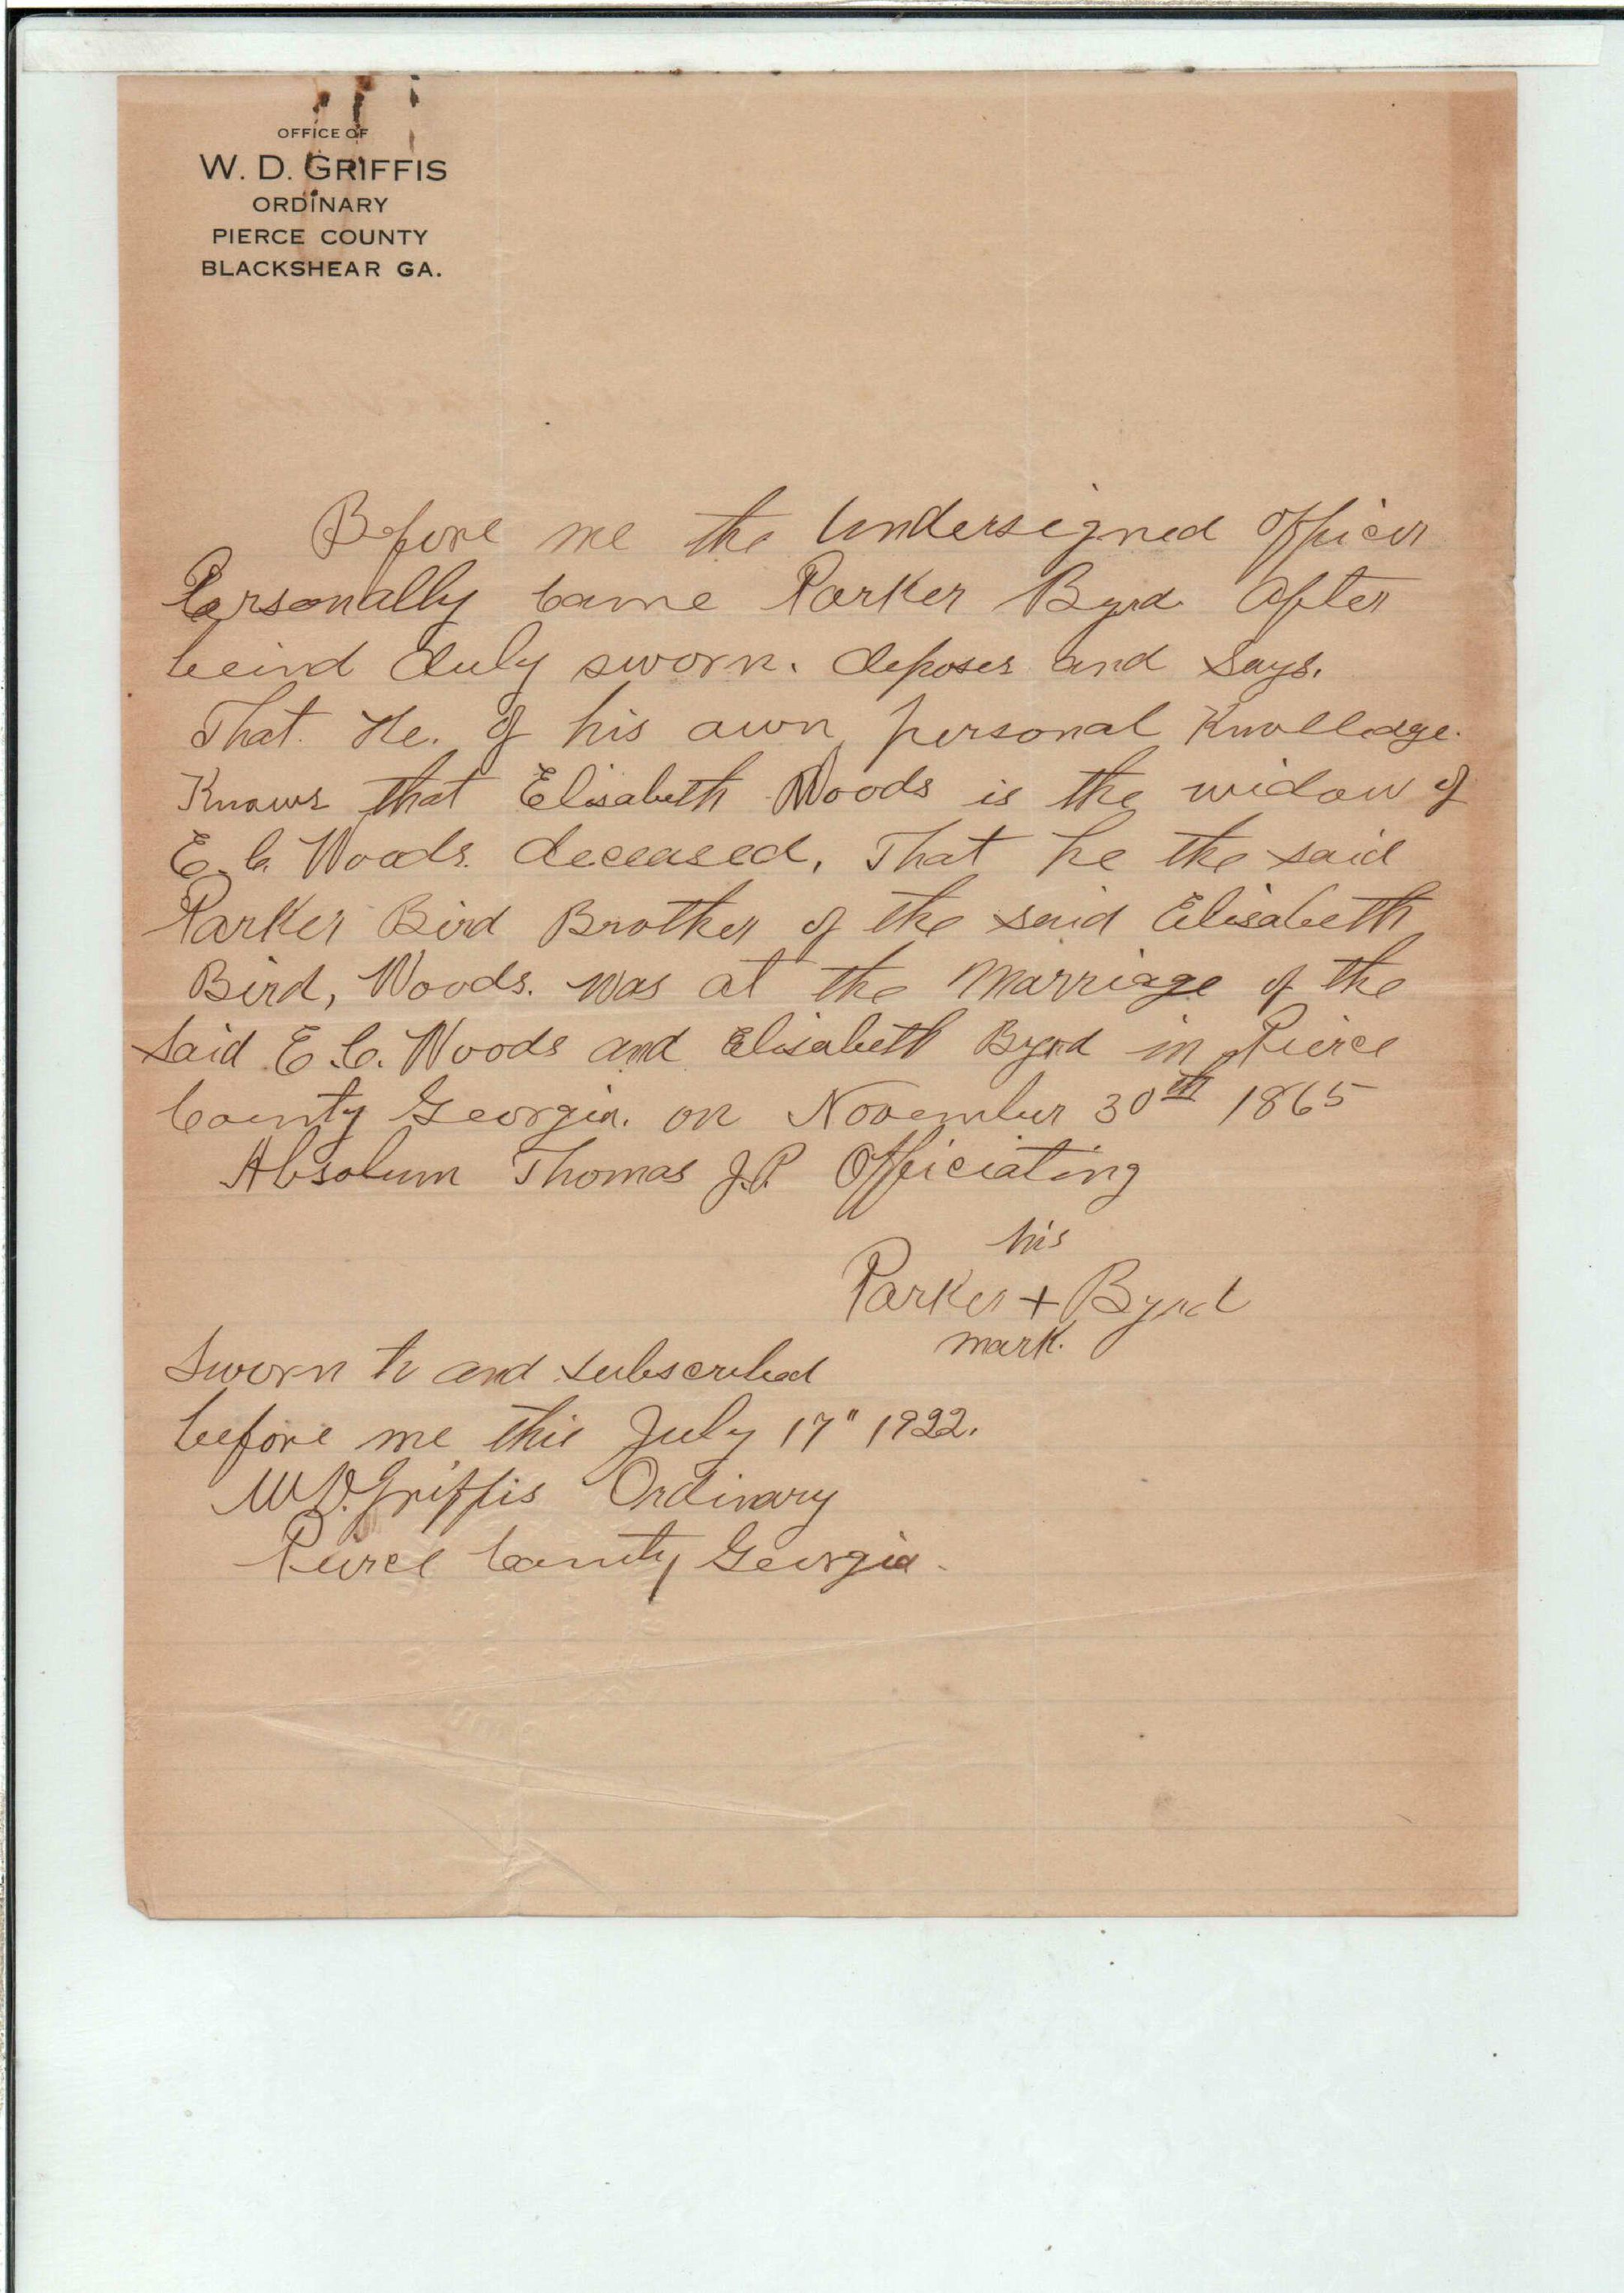 OFFICE OF
W. D. GRIFFIS
ORDINARY
PIERCE COUNTY
BLACKSHEAR GA.
Before me the Undersigned Officer
Personally Came Parker Byrd After
beind duly sworn. deposes and Says.
That. He. of his own personal Knolledge.
Knows that Elisabeth Woods is the widow of
E. C. Woods. deceased, That he the said
Parker Bird Brother of the said Elisabeth
Bird, Woods. was at the Marriage of the
Said E. C. Woods and Elisabeth Byrd in Pierce
County Georgia. on November 30th 1865
Absolum Thomas J.P. Officiating
his
Parker + Byrd
mark.
Sworn to and subscribed
before me this July 17" 1922.
W D. Griffis Ordinary
Peirce County Georgia.